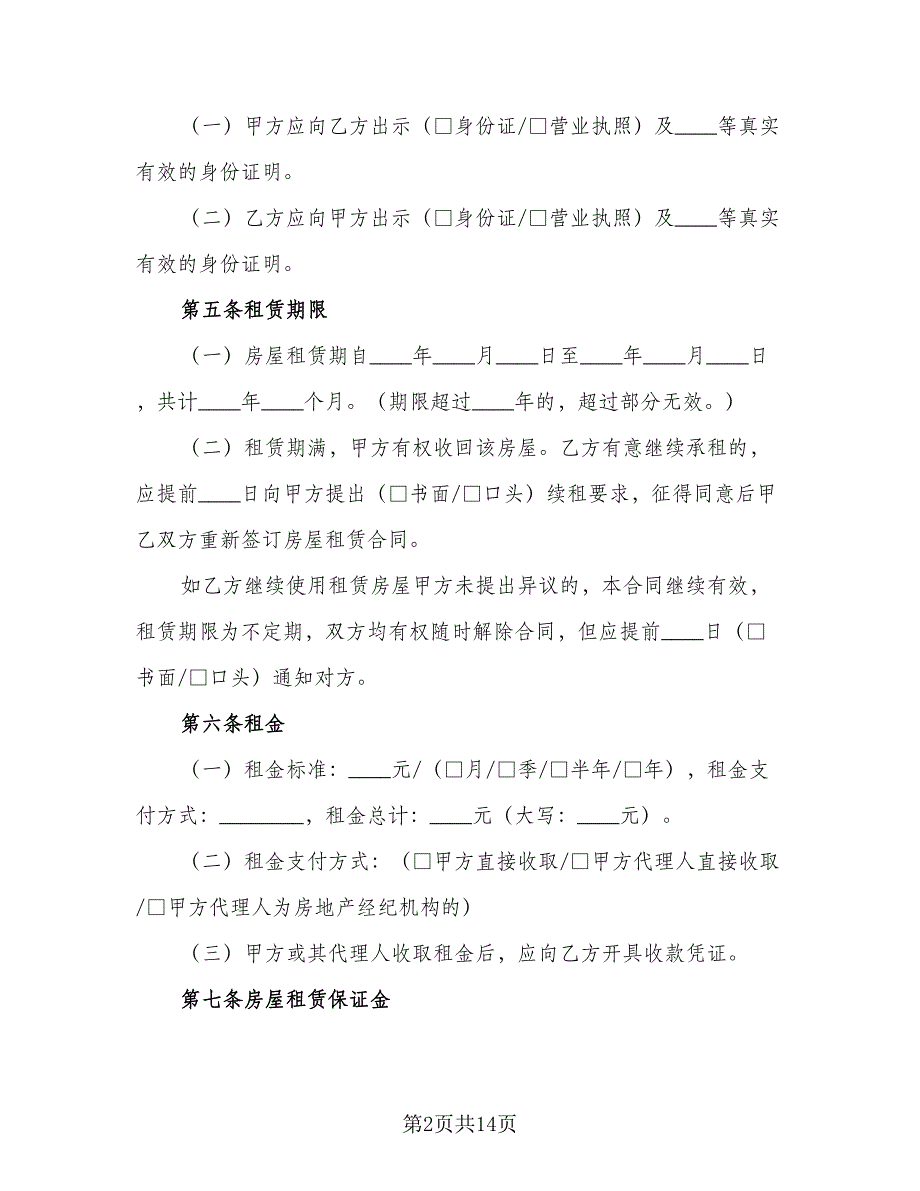 （一）甲方应向乙方出示（□身份证/□营业执照）及____等真实
有效的身份证明。
（二）乙方应向甲方出示（□身份证/□营业执照）及____等真实
有效的身份证明。
第五条租赁期限
（一）房屋租赁期自____年____月____日至____年____月____日
，共计____年____个月。（期限超过____年的，超过部分无效。）
（二）租赁期满，甲方有权收回该房屋。乙方有意继续承租的，
应提前____日向甲方提出（□书面/□口头）续租要求，征得同意后甲
乙双方重新签订房屋租赁合同。
如乙方继续使用租赁房屋甲方未提出异议的，本合同继续有效，
租赁期限为不定期，双方均有权随时解除合同，但应提前____日（□
书面/□口头）通知对方。
第六条租金
（一）租金标准：____元/（□月/□季/□半年/□年），租金支
付方式：________，租金总计：____元（大写：____元）。
（二）租金支付方式：（□甲方直接收取/□甲方代理人直接收取
/□甲方代理人为房地产经纪机构的）
（三）甲方或其代理人收取租金后，应向乙方开具收款凭证。
第七条房屋租赁保证金
第2页共14页